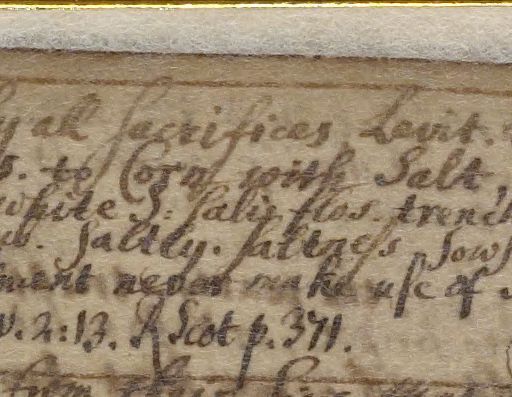 all Sacrifices Levit.
to Corn with Salt,
white S: Salis flos. trench
Saltly. Saltness Sows
ment never make use of
V. 2:13. R Scot p. 371.